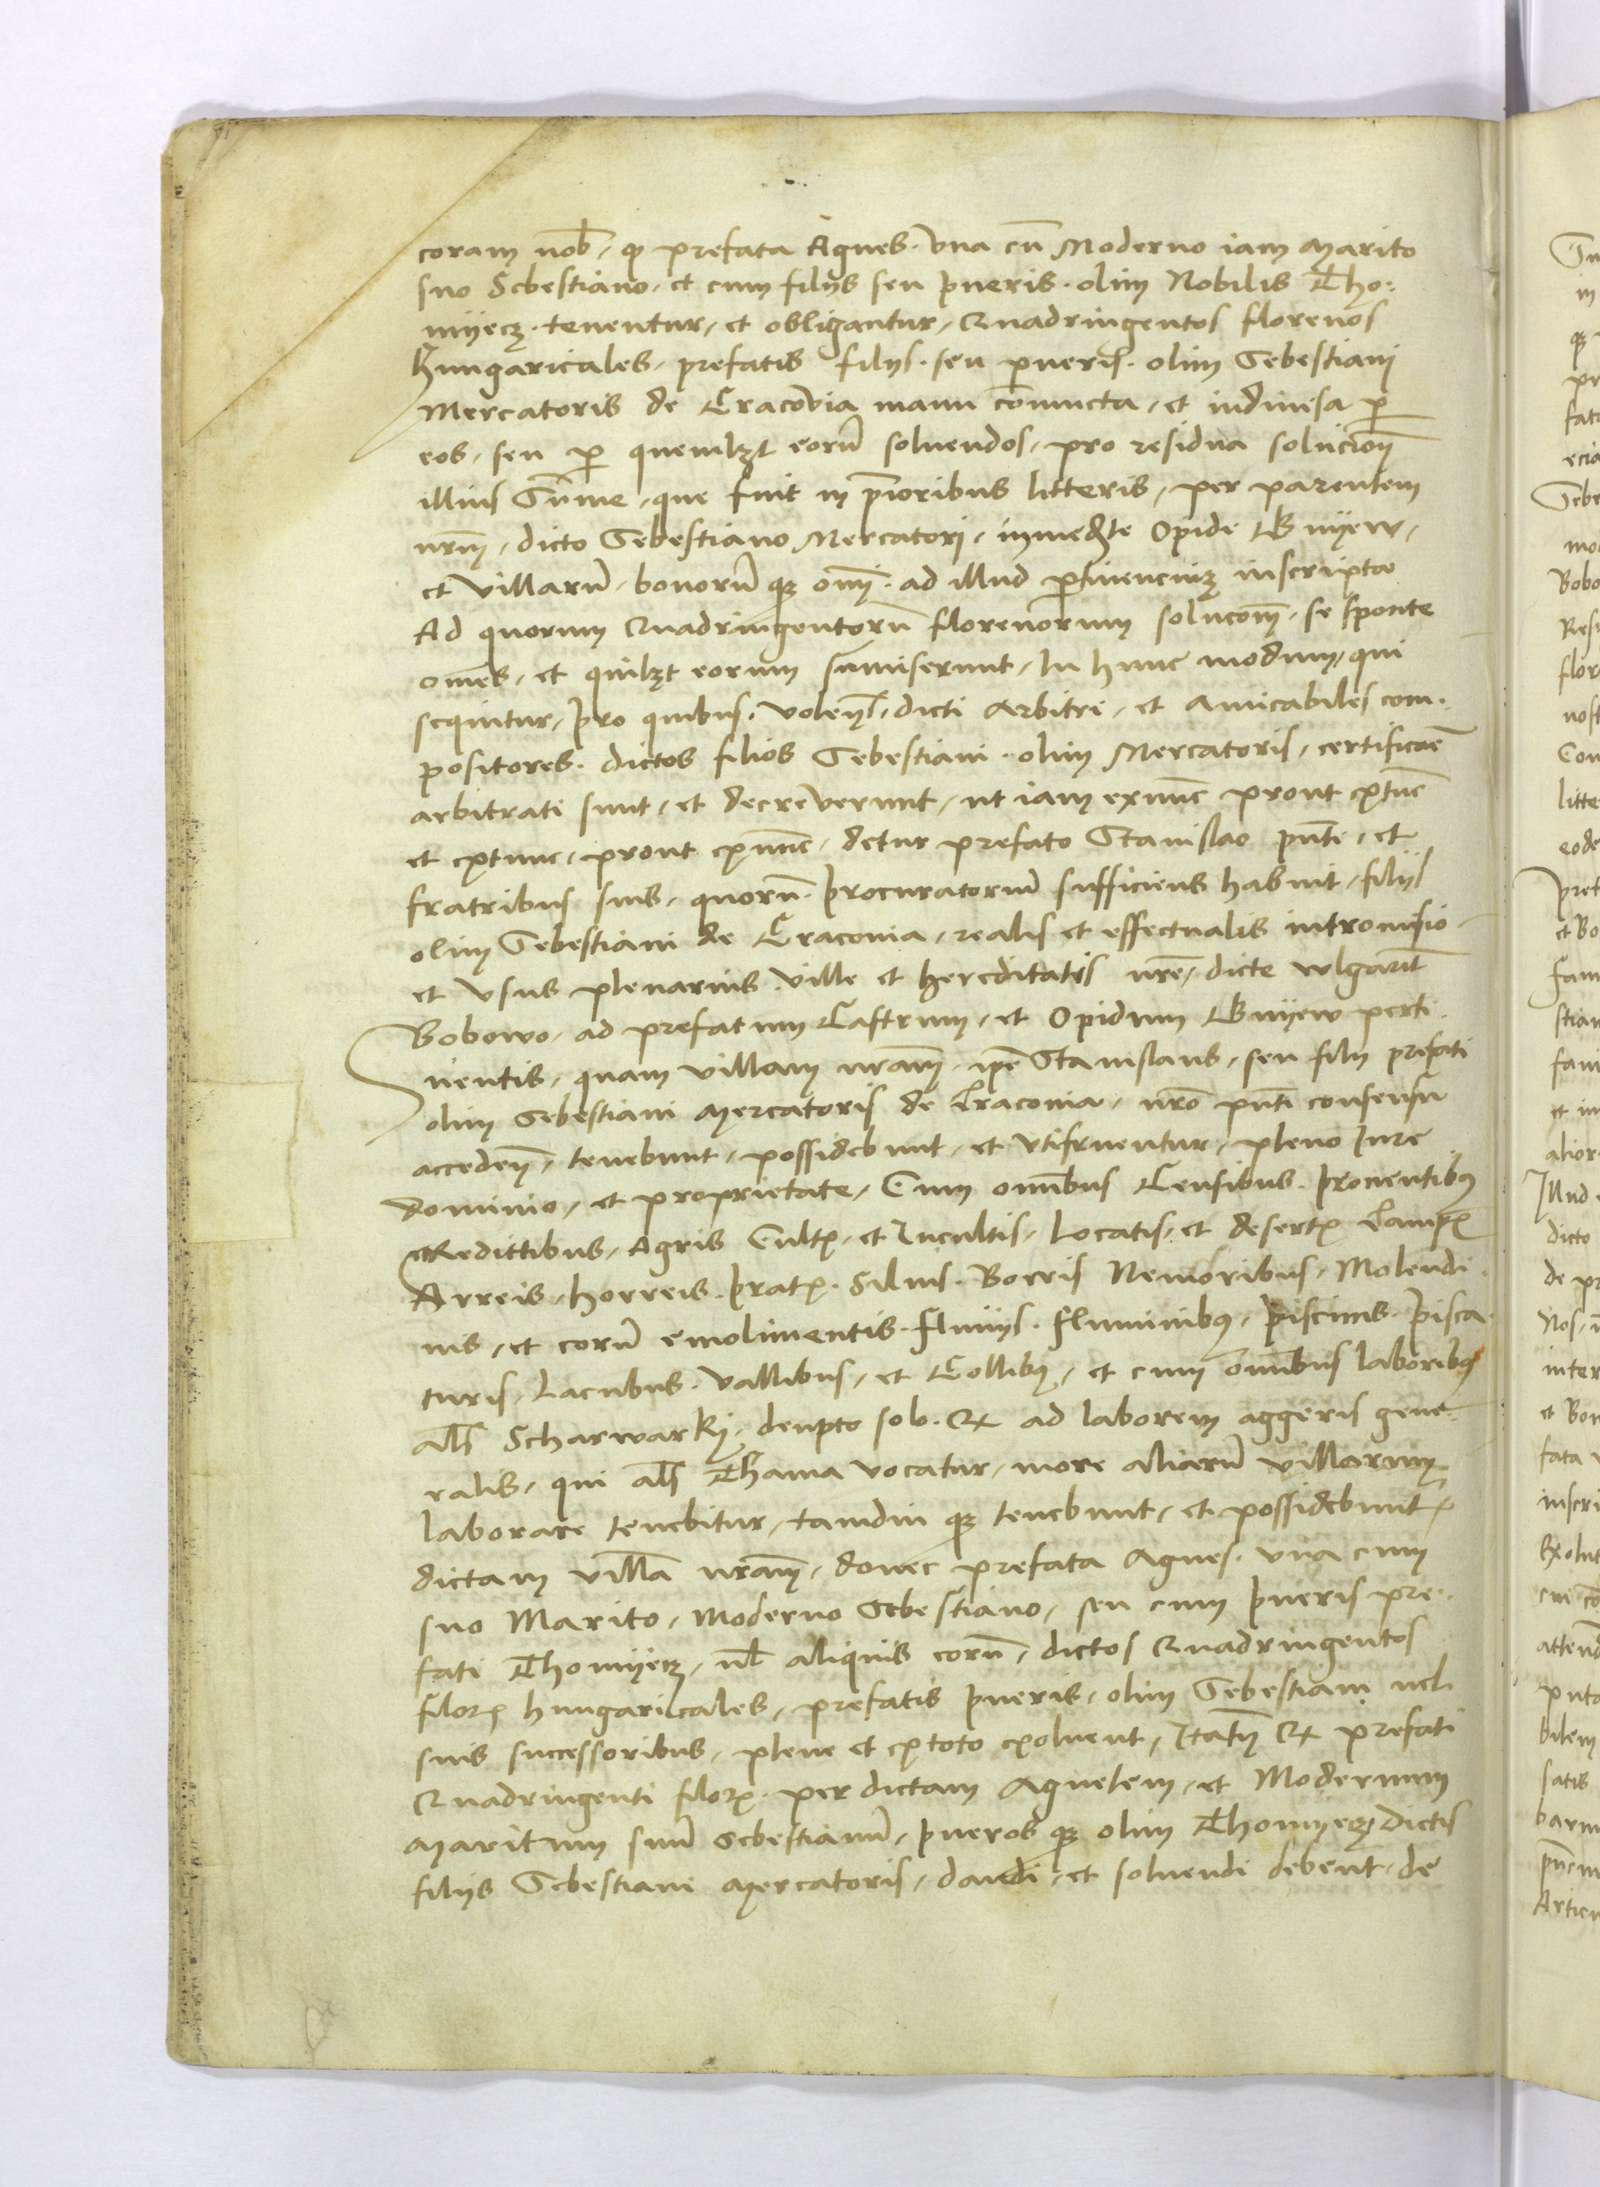 coram nob̄, ꝙ prefata Agnes. vna cū Moderno iam Marito
suo Sebestiano, et cum filijs seu pueris. olim Nobilis Tho:
mijecꝫ. tenentur, et obligantur, Quadringentos florenos
Hungaricales, prefatis filijs. seu pueris. olim Sebestiani
Mercatoris de Cracovia manu coniuncta, et indiuisa p̄
eos, seu p̄ quemlꝫt eorū soluendos, pro residua solucion̄
illius Sūme, que fuit in p̄ioribus litteris, per parentem
nrm̄, dicto Sebestiano Mercatori, Opide Gnyew,
et villarū. bonorū qꝫ om̄j. ad illud inscripta
Ad quorum Quadringentorū florenorum soluco͞m, se sponte
omes, et quilꝫt eorum sum̄iserunt, In hunc modum, qui
sequitur, Pro quibus. dicti Arbitri, et Amicabiles com.
positores. dictos filios Sebestiani. olim Mercatoris, certificar̄
arbitrati sunt, et decreverunt, ut iam exnunc prout extūc
et extunc, prout exnunc, detur prefato Stanislao pn̄ti, et
fratribus suis, quorū Procuratoriū sufficiens habuit, filijs
olim Sebestiani de Craconia, realis et effectualis intromisio.
et vsus plenarius. Ville et Hereditatis nrē, dicte wlgarit̄
Bobowo, ad prefatum Castrum, et Opidum Gnyew perti.
nentis, quam villam nram̄, ip̄e Stanislaus, seu filij prefati
olim Sebestiani Mercatoris de Craconia, nrō pn̄ti consensu
acceden̄, tenebunt, possidebunt, et vtifruentur, pleno Iure
Dominio, et proprietate, Cum omībus Censibus. Prouentibꝰ
Redittibus, Agris Cultꝭ, et Incultis, Locatis, et desertꝭ Campꝭ
Arreis, Horreis. Pratꝭ. Siluis. Borris Nemoribus, Molendi.
nis, et eorū emolimentis. Fluuijs. Fluminibꝰ, Piscinis. Pisca.
turis, Lacubus. Vallibus, et Collibꝰ, et cum omībus laboribꝰ
al̄s Scharwarkj, dempto solo. ꝙ ad laborem aggeris gene.
ralis, qui al̄s Thama vocatur, more aliarū villarum
laborare tenebitur, tamdiu qꝫ tenebunt, et possidebunt
dictam villā nram̄, donec prefata Agnes. vna cum
suo Marito, Moderno Sebestiano, seu cum Pueris pre.
fati Thomijecꝫ, ul̄ aliquis eorū, dictos Quadringentos
florꝭ hungaricales, prefatis Pueris, olim Sebestiani uel
suis successoribus, plene et extoto exoluent, Itatn̄ ꝙ prefati
Quadringenti florꝭ. per dictam Agnetem, et Modernum
Maritum suū Sebestianū, Pueros qꝫ olim Thomyecꝫ, Dictis
filijs Sebestiani Mercatoris, dandi, et soluendi debent. de